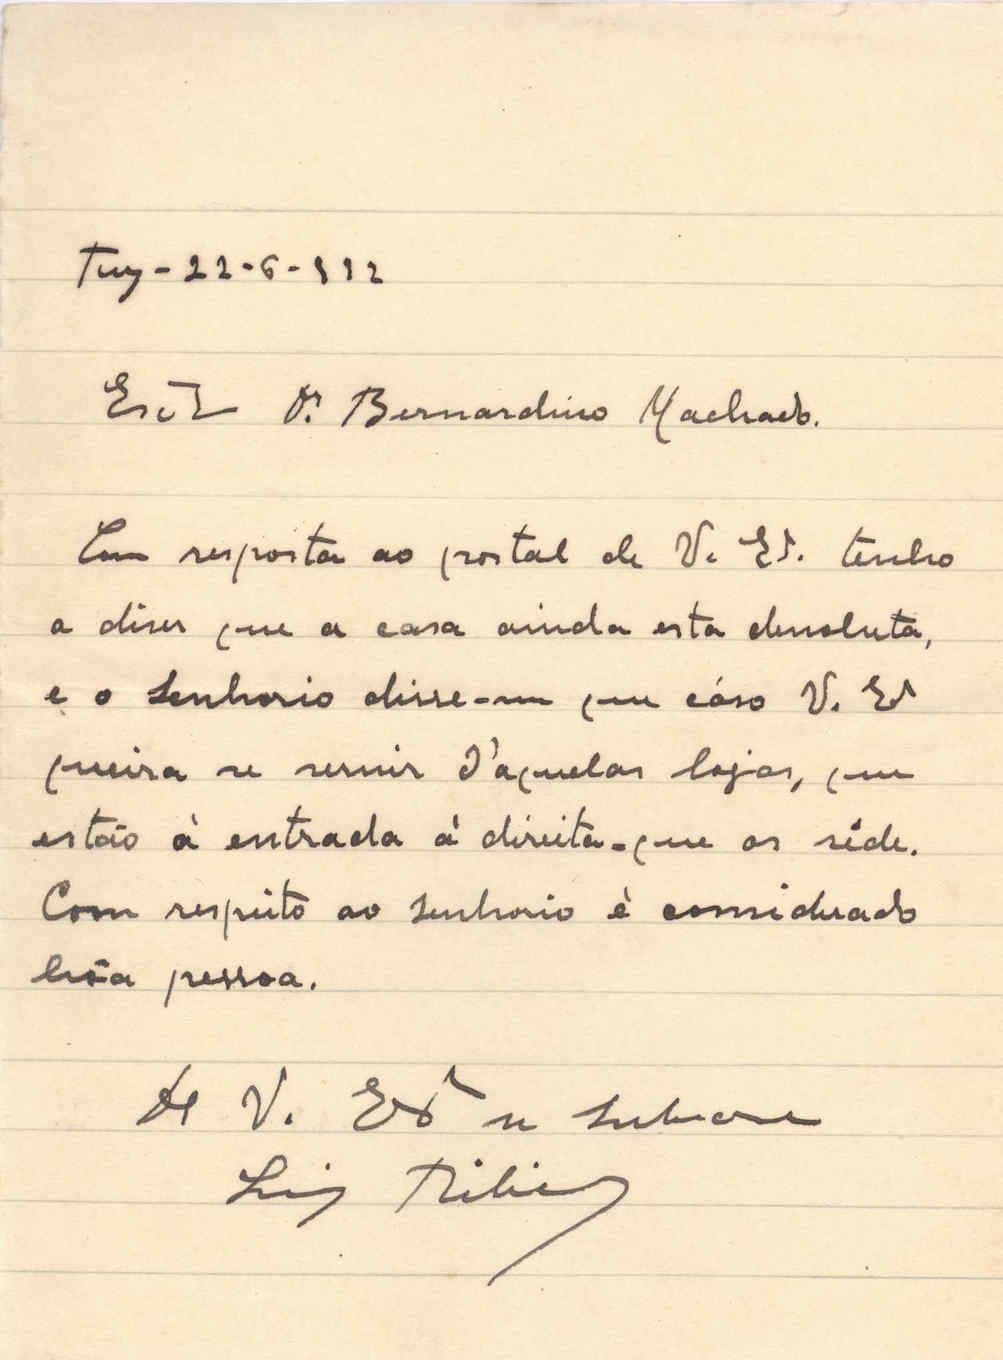 Tuy-22-6-932
Dr. Bernardino Machado.
Em resposta ao postal de V. Exª. tenho
a diser que a casa ainda esta devoluta,
e o senhorio disse-me que cáso V. Exª
queira se servir d'aquelas lojas, que
estão à entrada á direita-que as séde.
Com respeito ao senhorio è considerado
bôa pessoa.
de V. Exª se subscreve
Luiz